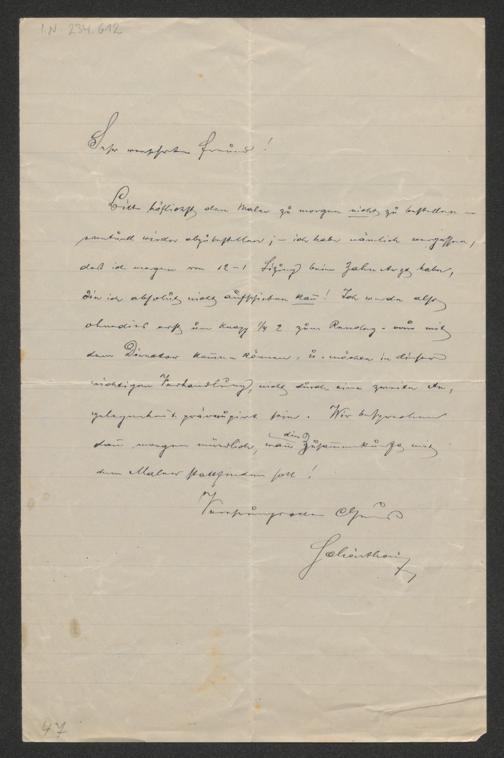 I.N. 234.612
Sehr verehrter Freund!
Bitte höflichst den Maler zu morgen nicht zu bestellen –
eventuell wieder abzubestellen; – ich habe nämlich vergessen,
daß ich morgen von 12–1 Sitzung beim Zahnarzt habe,
die ich absolut nicht aufschieben kann! Ich werde also
ohnedies erst um knapp 1/4 2 zum Rendez-vous mit
dem Director kommen können, u. möchte in dieser
wichtigen Verhandlung, nicht durch eine zweite An-
gelegenheit präoccupirt sein. Wir besprechen
dann morgen mündlich, wann die Zusammenkunft mit
dem Maler stattfinden soll!
Verehrungsvollen Gruß
47